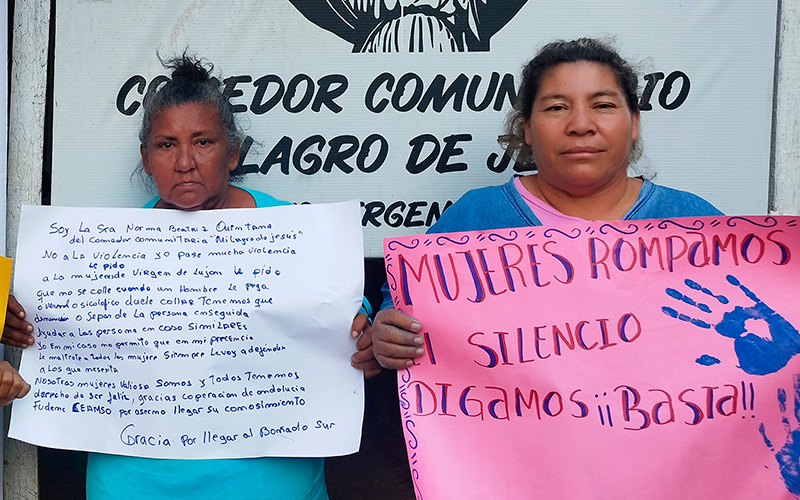 COMEDOR COMUNITARIO
MILAGRO DE JE
VIRGEN
Soy La Sra Norma Beatriz Quintana
del Comedor comunitaria "Milagro de jesus"
No a La Violencia yo pase mucho Violencia
Le pido
a La mujeres de Virgen de Lujan Le pido
que no se calle cuando un Hombre Le pega
o verval o sicologico duele callar Tenemos que
o Separ de La persona enseguida
Ayudar a Las persona em caso SimiLARes
yo En mi caso no permito que em mi precencia
Le maltrate a Todas Las mujere Siempre Le voy a defender
a Los que meserita
Nosotras mujeres Valiosa Somos y Todos Tenemos
derecho de ser feliz, gracias coperacion de andalucia
Fudeme CEAMSO por asermo llegar su conosimiento
Gracia por llegar al Bañado Sur
MUJERES ROMPAMOS
El SILENCIO
DIGAMOS ¡¡BASTA!!